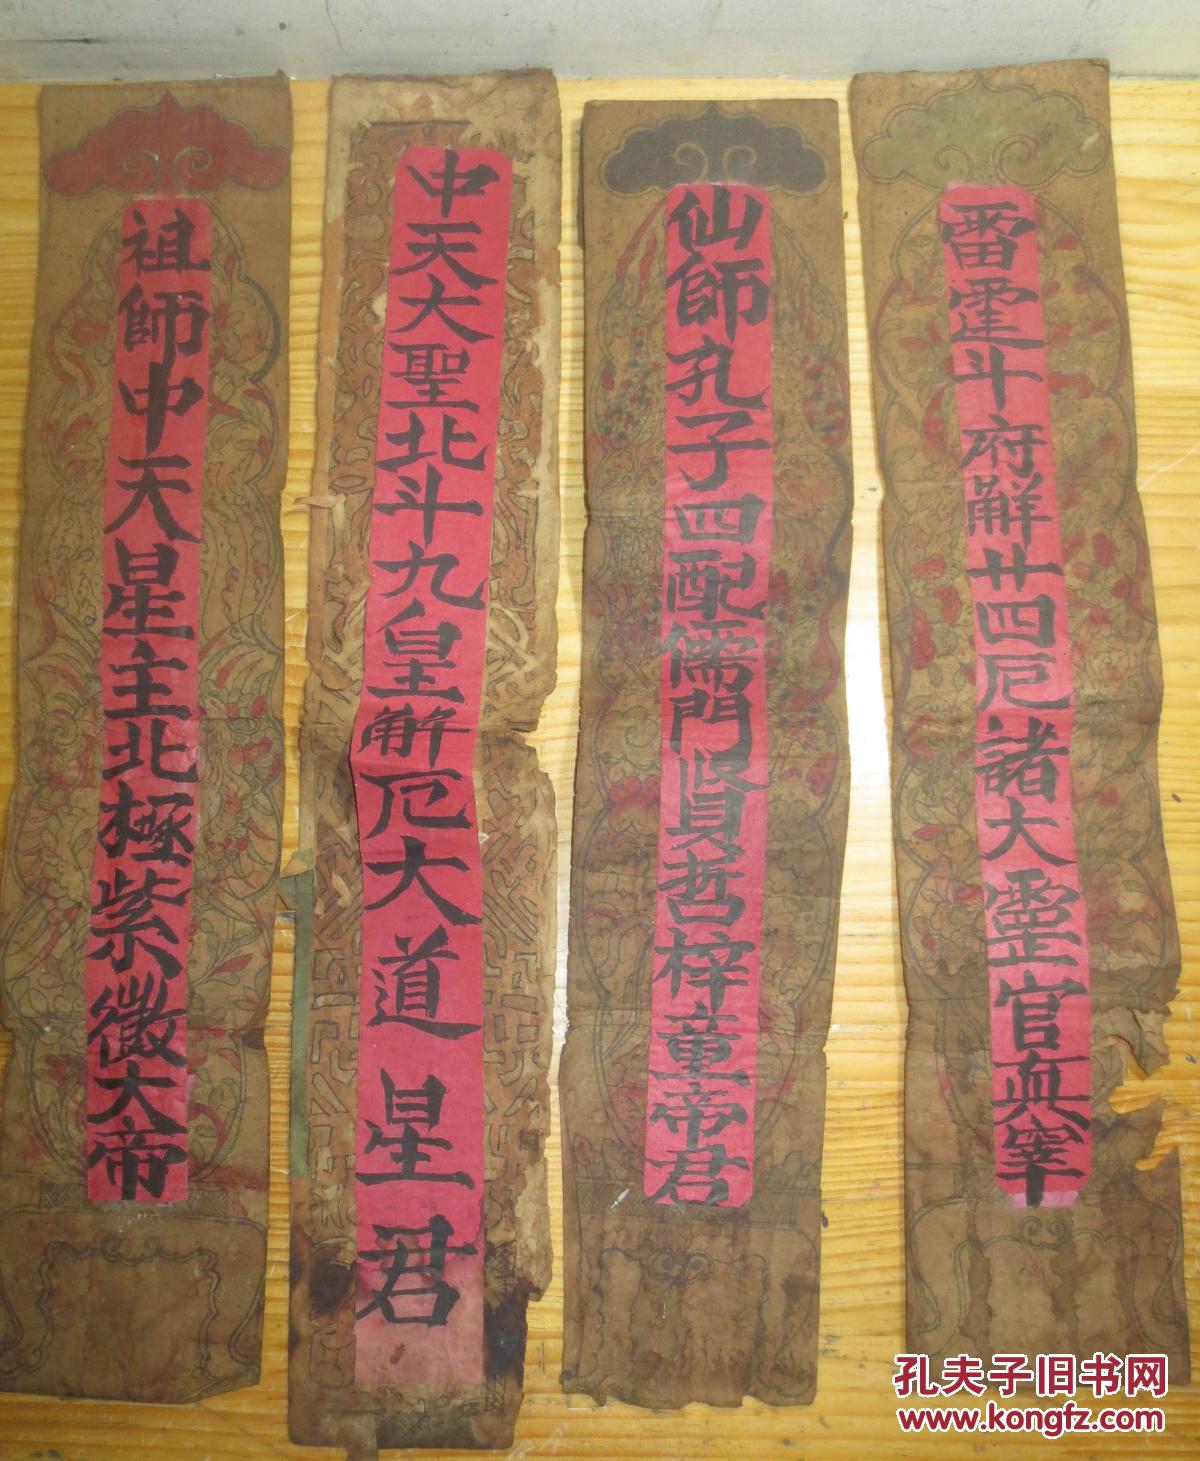 祖師中天星主北極紫微大帝
中天大聖北斗九皇解厄大道星君
仙師孔子四配儒門賢哲梓童帝君
雷霆斗府解廿四厄諸大靈官眞宰
孔夫子旧书网
www.kongfz.com